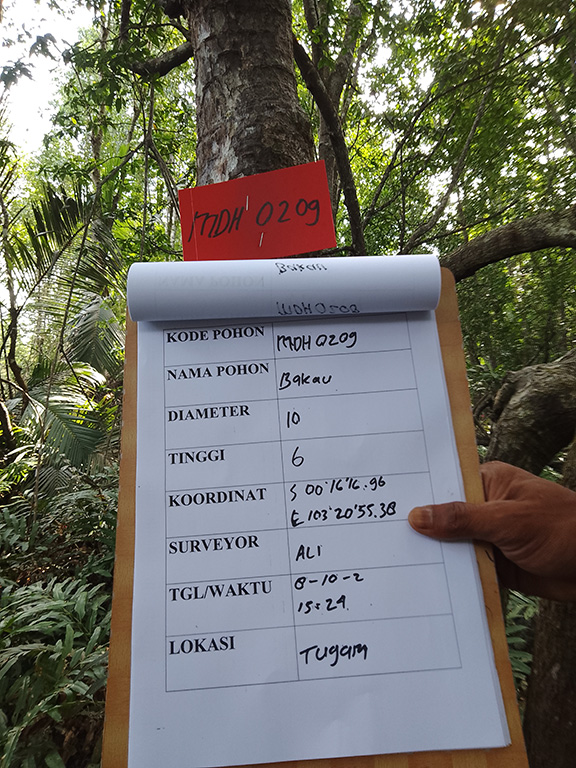 MDH 0209
Bakau
KODE POHON MDH 0209
NAMA POHON Bakau
DIAMETER 10
TINGGI 6
KOORDINAT S 00°16'16.96
E 103°20'55.38
SURVEYOR ALI
TGL/WAKTU 8-10-2
15:29
LOKASI Tugam